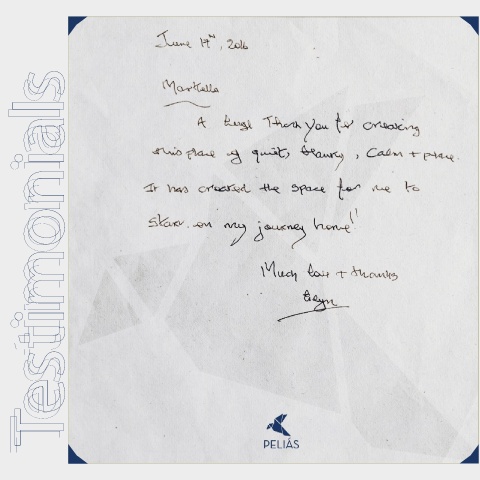 Testimonials
June 17th, 2016
Markella
A huge Thank you for creating
this place of quiet, beauty, Calm + peace.
It has created the space for me to
start on my journey home!!
Much love + thanks
PELIÁS